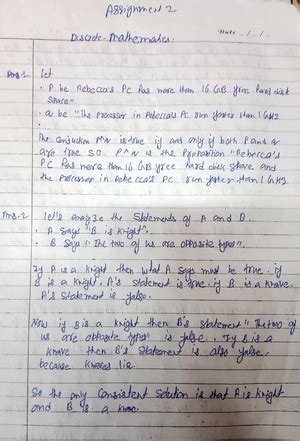 Assignment 2
Date _/_/_
Discrete Mathematics.
Ans-1 Let
• P be Rebecca's PC has more than 16 GB free hard disk
space"
• q be "The Processor in Rebecca's PC run faster than 1 GHz
The Conjuction P^q is true if and only if both P and q
are true so. P^q is the Proposition "Rebecca's
PC has more than 16 GB free hard disk space and
the Processor in Rebecca's PC run faster than 1 GHz.
Ans-2 Let's analyze the Statements of A and B.
• A Says "B is Knight".
• B Says "The two of us are opposite types".
If A is a knight then what A Says must be true. if
B is a knight, A's statement is true. if B is a knave
A's Statement is false.
Now if B is a knight then B's Statement "The two of
us are opposite types" is false. If B is a
knave then B's Statement is also false.
because knaves lie.
So the only Consistent Solution is that A is knight
and B is a